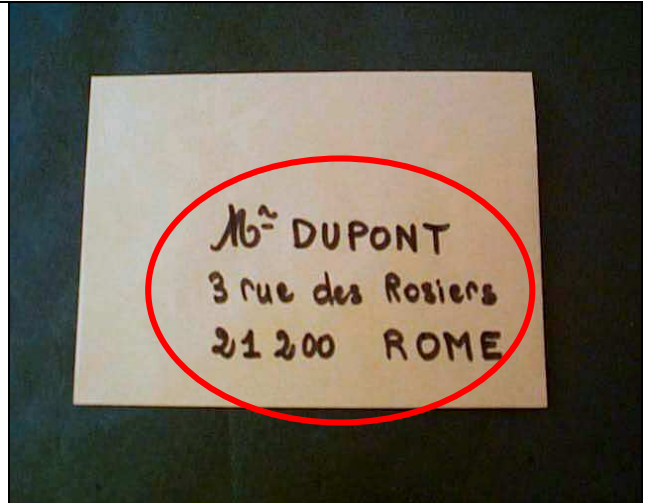 Mr DUPONT
3 rue des Rosiers
21 200 ROME